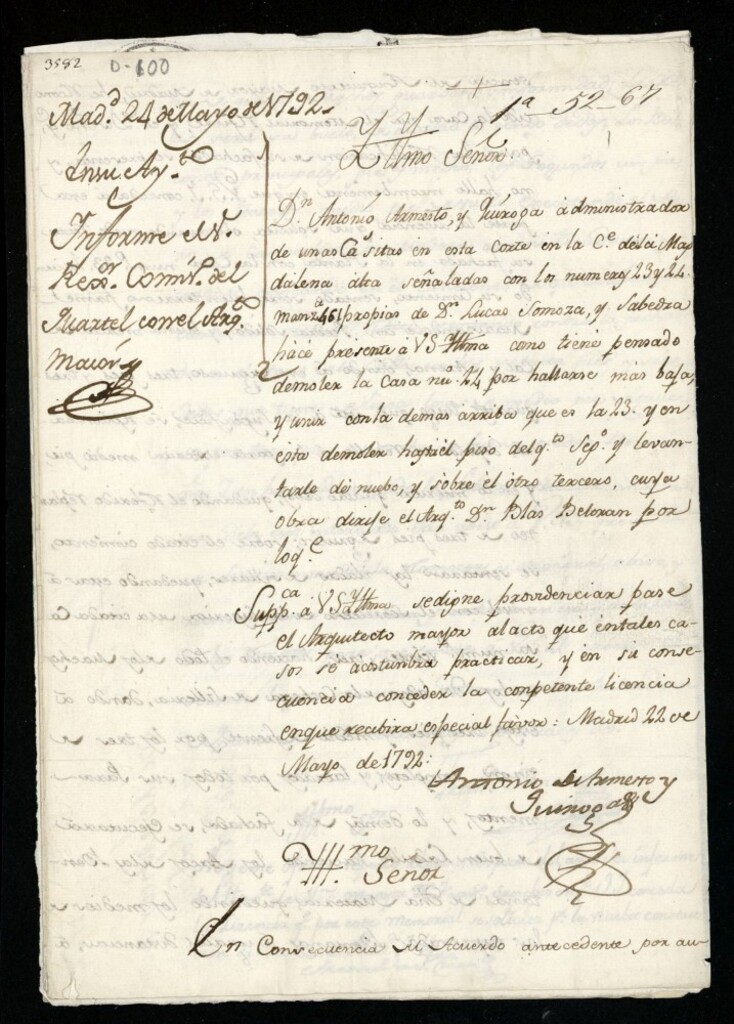 3592
0-600
1ª 52-67
Madd. 24 de Mayo de 1792.
En su Ayto.
Informe el Sr.
Rexor. Comisº. del
Quartel con el Arqto.
maior
Yllmo Señor
Dn. Antonio Armesto, y Quiroga administrador
de unas Cas. sitas en esta corte en la Ce. de la Mag
dalena alta señaladas con los numeros 23 y 24.
manza. 461 propias de Dn. Lucas Somoza, y Sabedra
hace presente à VS Yltma como tiene pensado
demoler la Casa nuo. 24 por hallarse mas baja,
y unir con la demas arriba que es la 23. y en
esta demoler hasta el piso del qto. Sego. y levan-
tarle de nuebo, y sobre el otro tercero, cuya
obra dirije el Arqto. Dn. Blàs Beltran por
loqe.
Suppca. à VS Yltma se digne providenciar pase
el Arquitecto mayor al acto que en tales ca-
sos se acostumbra practicar, y en su conse-
cuencia conceder la conpetente licencia
en que recibira especial favor: Madrid 22 de
Mayo de 1792:
Antonio de Armesto y
Quiroga
Yll.mo
Señor
En Consecuencia del Acuerdo antecedente por au-